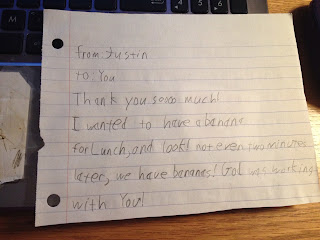 from: Justin
to: You
Thank you soxo much!
I wanted to have a banana
for Lunch, and look! not even two minutes
later, we have bananas! God was working
with You!